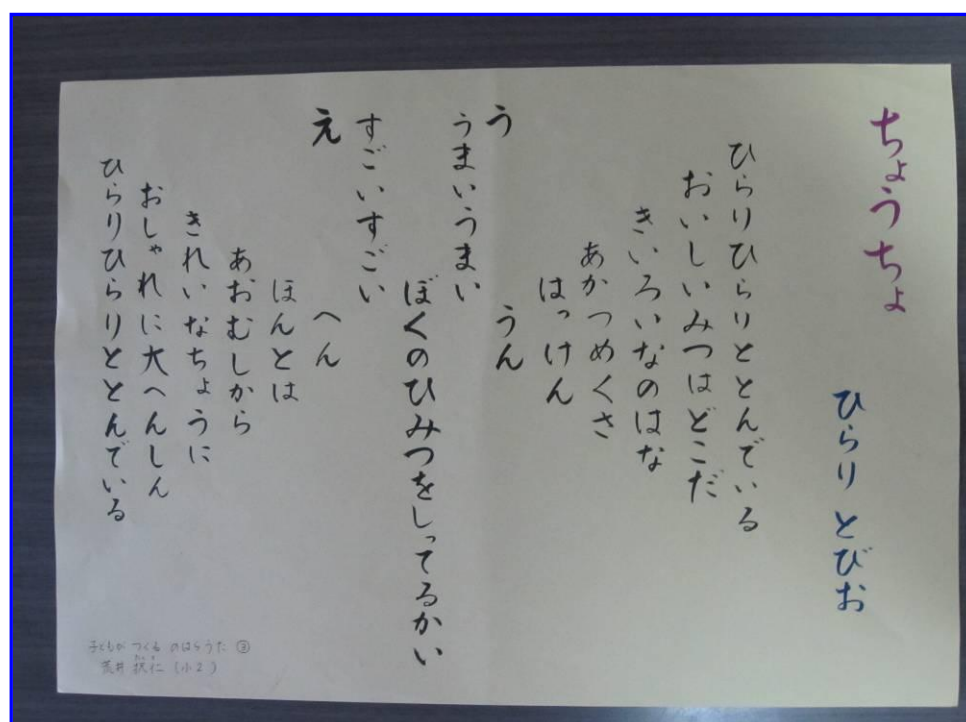 ちょうちょ
ひらり とびお
ひらりひらりととんでいる
おいしいみつはどこだ
きいろいなのはな
あかつめくさ
はっけん
う うん
うまいうまい
ぼくのひみつをしってるかい
すごいすごい
え へん
ほんとは
あおむしから
きれいなちょうに
おしゃれに大へんしん
ひらりひらりととんでいる
子どもがつくる のはらうた ②
荒井 仁 (小2)